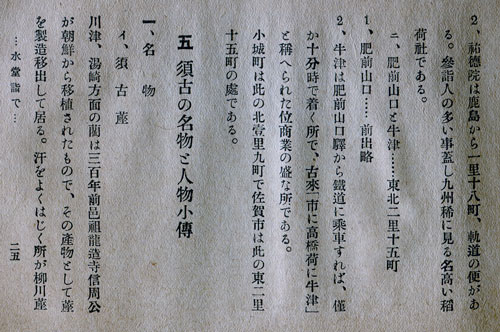 2、祐德院は鹿島から一里十八町、軌道の便があ
る。參詣人の多い事蓋し九州稀に見る名高い稻
荷社である。
ニ、肥前山口と牛津……東北二里十五町
1、肥前山口……前出略
2、牛津は肥前山口驛から鐵道に乘車すれば、僅
か十分時で着く所で、古來「一市に高橋荷に牛津」
と稱へられた位商業の盛な所である。
小城町は此の北壹里九町で佐賀市は此の東二里
十五町の處である。
五 須古の名物と人物小傳
一、名物
イ、須古蓙
川津、湯崎方面の藺は三百年前邑祖龍造寺信周公
が朝鮮から移植されたもので、その產物として蓙
を製造移出して居る。汗をよくはじく所が柳川蓙
…水堂詣で…
二五